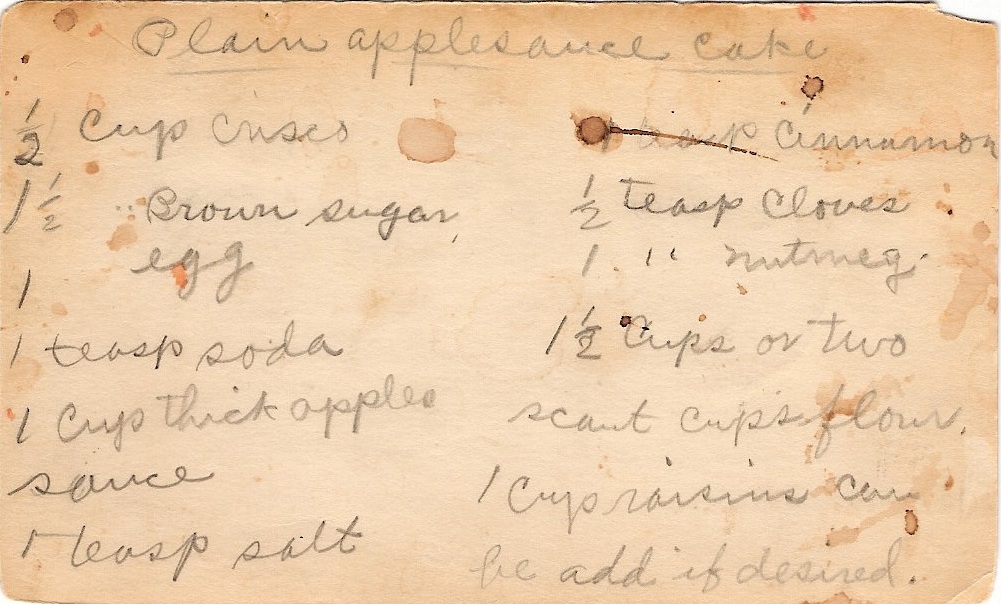 Plain applesauce cake
1/2 Cup Crisco
1 1/2 " Brown sugar
1 egg
1 teasp soda
1 Cup thick apples
sauce
1 teasp salt
1 teasp Cinnamon
1/2 teasp Cloves
1 " nutmeg.
1 1/2 Cups or two
scant cups flour.
1 Cup raisins can
be add if desired.